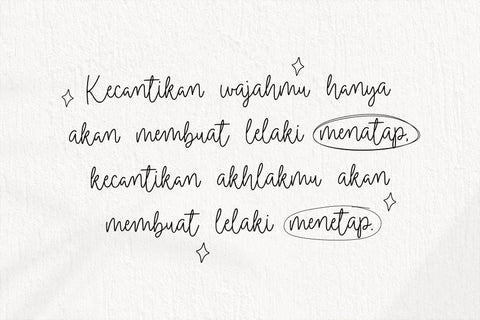 Kecantikan wajahmu hanya
akan membuat lelaki menatap,
kecantikan akhlakmu akan
membuat lelaki menetap.